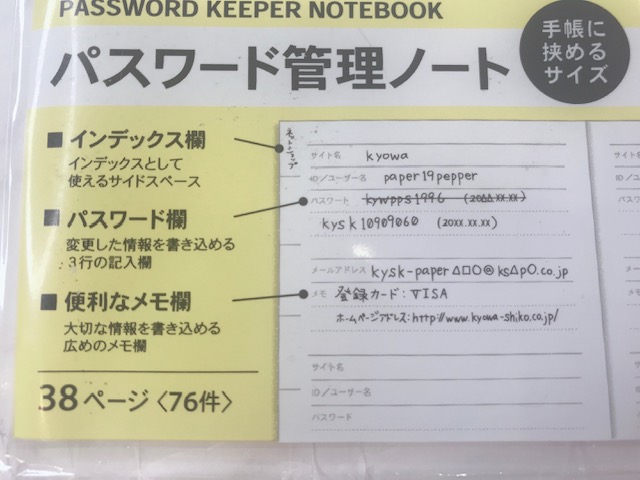 PASSWORD KEEPER NOTEBOOK
パスワード管理ノート
手帳に
挟める
サイズ
■ インデックス欄
インデックスとして
使えるサイドスペース
■ パスワード欄
変更した情報を書き込める
3行の記入欄
■ 便利なメモ欄
大切な情報を書き込める
広めのメモ欄
38ページ〈76件〉
ネットショップ
サイト名 kyowa
ID/ユーザー名 paper19pepper
パスワード kywpps1996 (20△△.xx.xx)
kysk10909060 (20xx.xx.xx)
メールアドレス kysk-paper△□○@ks△p○.co.jp
メモ 登録カード:VISA
ホームページアドレス:http://www.kyowa-shiko.co.jp/
サイト名
ID/ユーザー名
パスワード